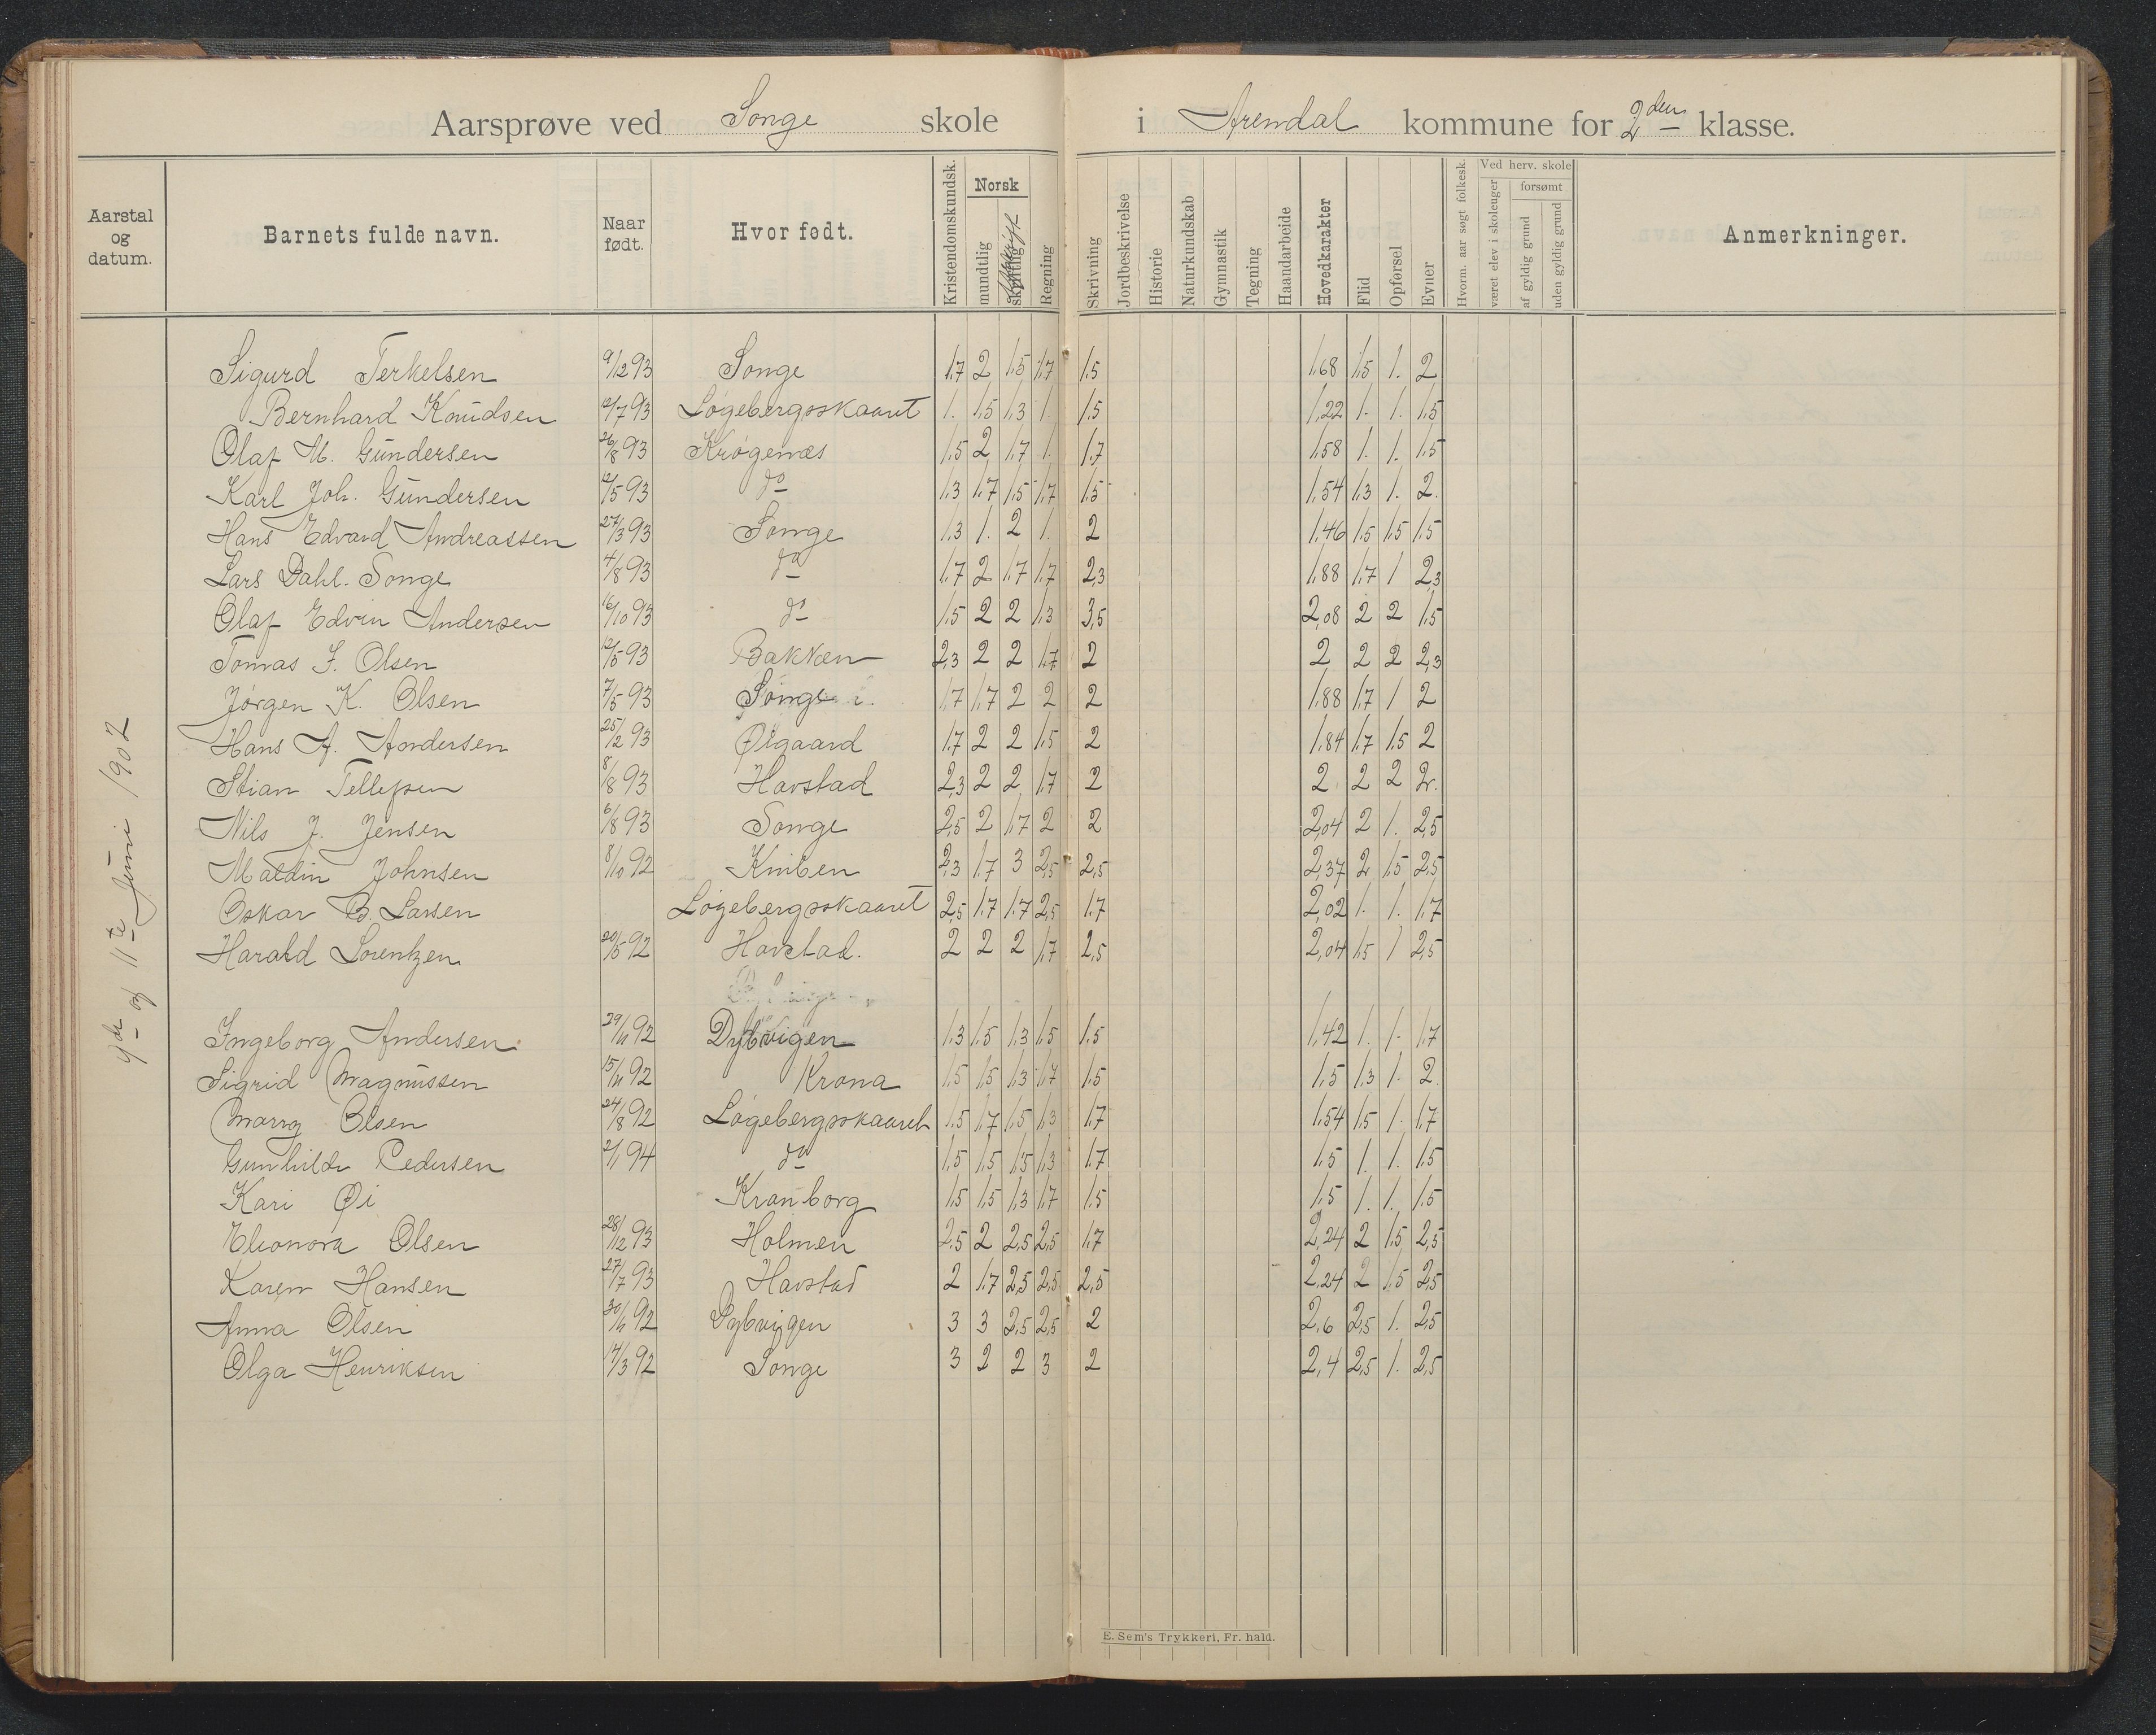 Aarsprøve ved Songe skole i Arendal kommune for 2den klasse.
Aarstal og datum. Barnets fulde navn. Naar født. Hvor født. Kristendomskundsk. Norsk mundtlig skriftlig Regning Skrivning Jordbeskrivelse Historie Naturkundskab Gymnastik Tegning Haandarbeide Hovedkarakter Flid Opførsel Evner Hvorm. aar søgt folkesk. Ved herv. skole været elev i skoleuger forsømt af gyldig grund uden gyldig grund Anmerkninger.
og 11te Juni 1902
Sigurd Terkelsen 9/12 93 Songe 1.7 2 1.5 1.7 1.5 1.68 1.5 1. 2
Bernhard Knudsen 12/7 93 Løgebergsskaaret 1. 1.5 1.3 1. 1.5 1.22 1. 1. 1.5
Olaf M. Gundersen 26/8 93 Krøgenæs 1.5 2 1.7 1. 1.7 1.58 1. 1. 1.5
Karl Joh. Gundersen 12/5 93 do 1.3 1.7 1.5 1.7 1.5 1.54 1.3 1. 2.
Hans Edvard Andreassen 27/3 93 Songe 1.3 1. 2 1. 2 1.46 1.5 1.5 1.5
Lars Dahl. Songe 4/8 93 do 1.7 2 1.7 1.7 2,3 1.88 1.7 1 2,3
Olaf Edvin Andersen 16/10 93 do 1.5 2 2 1.3 3,5 2,08 2 2 1.5
Tomas J. Olsen 12/5 93 Bakken 2,3 2 2 1.7 2 2 2 2 2,3
Jørgen K. Olsen 7/5 93 Songe 1.7 1.7 2 2 2 1.88 1.7 1 2
Hans A. Andersen 25/2 93 Ølgaard 1.7 2 2 1.5 2 1.84 1.7 1.5 2
Stian Tellefsen 8/8 93 Havstad 2,3 2 2 1.7 2 2 2 2 2.
Nils J. Jensen 6/8 93 Songe 2,5 2 1.7 2 2 2,04 2 1. 2,5
Maldin Johnsen 8/10 92 Kniben 2,3 1.7 3 2,5 2,5 2,37 2 1.5 2,5
Oskar B. Larsen Løgebergsskaaret 2,5 1.7 1.7 2,5 1.7 2,02 1. 1. 1.7
Harald Lorentzen 20/5 92 Havstad. 2 2 2 1.7 2,5 2,04 1.5 1 2,5
Ingeborg Andersen 29/11 92 Dybvigen 1.3 1.5 1.3 1.5 1.5 1.42 1. 1. 1.7
Sigrid Magnussen 15/11 92 Krona 1.5 1.5 1.3 1.7 1.5 1.5 1.3 1. 2.
Marry Olsen 24/8 92 Løgebergsskaaret 1.5 1.7 1.5 1.3 1.7 1.54 1.5 1. 1.7
Gunhilde Pedersen 2/1 94 do 1.5 1.5 1.5 1.3 1.7 1.5 1. 1. 1.5
Kari Øi Kranborg 1.5 1.5 1.3 1.7 1.5 1.5 1. 1. 1.5
Eleonora Olsen 28/12 93 Holmen 2,5 2 2,5 2,5 1.7 2,24 2 1.5 2,5
Karen Hansen 27/7 93 Havstad 2 1.7 2,5 2,5 2,5 2,24 2 1.5 2,5
Anna Olsen 30/11 92 Dybvigen 3 3 2,5 2,5 2 2,6 2,5 1. 2,5
Olga Henriksen 17/3 92 Songe 3 2 2 3 2 2,4 2,5 1. 2,5
E. Sem's Trykkeri, Fr. hald.